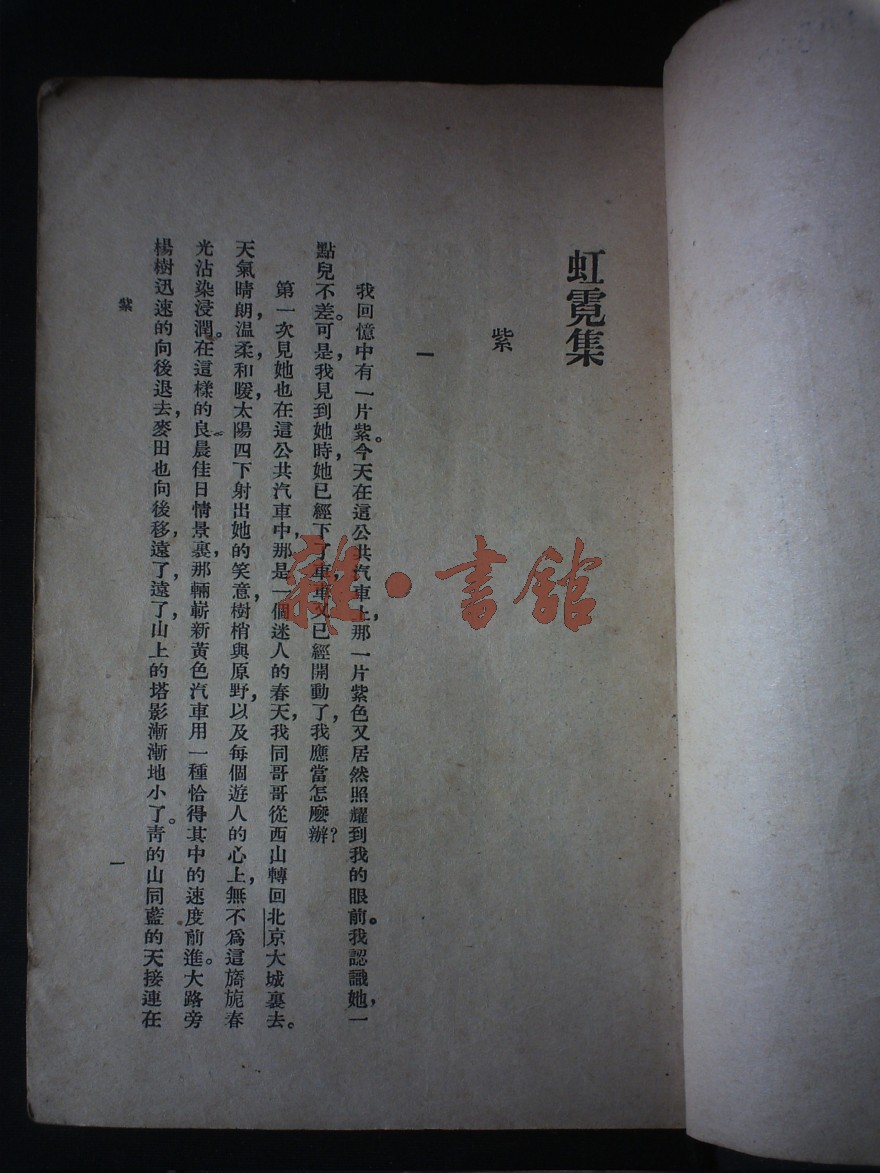 虹霓集
紫
一
我回憶中有一片紫。今天在這公共汽車上，那一片紫色又居然照耀到我的眼前。我認識她，一
點兒不差。可是，我見到她時，她已經下了車，車又已經開動了，我應當怎麼辦？
第一次見她也在這公共汽車中，那是一個迷人的春天，我同哥哥從西山轉回北京大城裏去。
天氣晴朗，溫柔，和暖，太陽四下射出她的笑意，樹梢與原野，以及每個遊人的心上，無不爲這旖旎春
光沾染浸潤。在這樣的良晨佳日情景裏，那輛嶄新黃色汽車用一種恰得其中的速度前進。大路旁
楊樹迅速的向後退去，麥田也向後移，遠了，遠了，山上的塔影漸漸地小了。青的山同藍的天接連在
紫
一
雜·書館